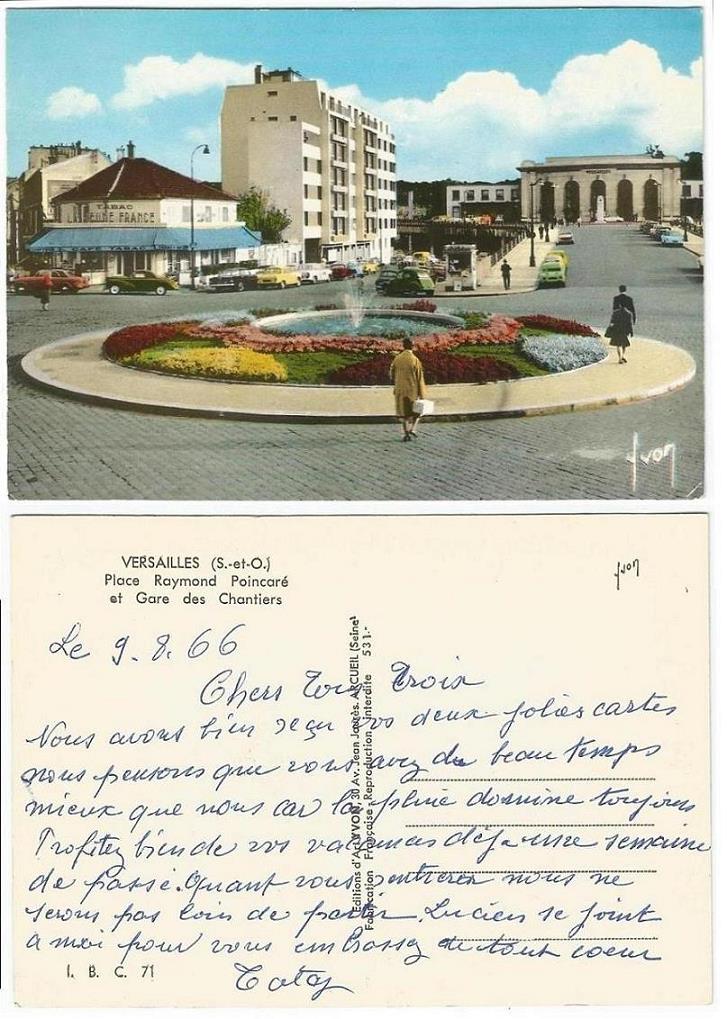 TABAC
JEUNE FRANCE
CAFE TABAC
yvon
VERSAILLES (S.-et-O.)
Place Raymond Poincaré
et Gare des Chantiers
yvon
Le 9.8.66
Chers Tous Trois
Nous avons bien reçu vos deux jolies cartes
nous pensons que vous avez du beau temps
mieux que nous car la pluie domine toujours
Profitez bien de vos vacances déja une semaine
de passé. Quant vous rentrerez nous ne
serons pas loin de partir. Lucien se joint
a moi pour vous embrassez de tout coeur
I. B. C. 71
Editions d'Art YVON, 30 Av. Jean Jaurès. ARCUEIL (Seine)
Fabrication Française - Reproduction interdite 531.-